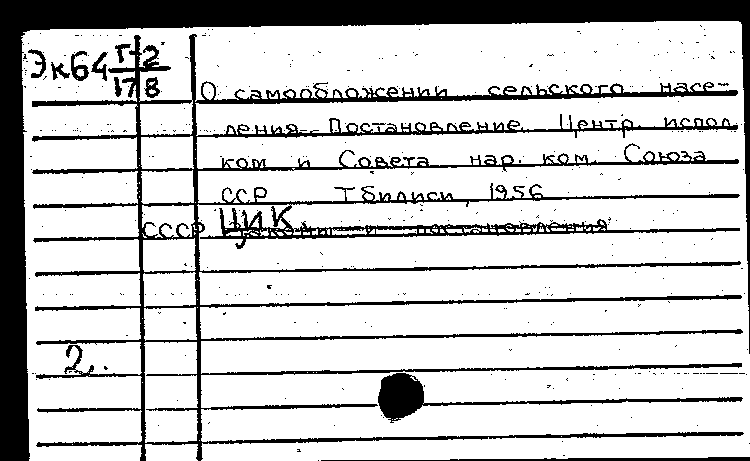 Эк64 Г-2
17 8
О самообложении сельского насе-
ления. Постановление Центр. испол.
ком и Совета нар. ком. Союза
ССР Тбилиси, 1956
СССР ЦИК
Законы и постановления
2.